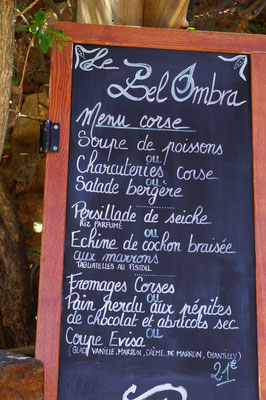 Le Bel Ombra
Menu corse
Soupe de poissons
ou
Charcuteries corse
ou
Salade bergère
Persillade de seiche
Riz parfumé
ou
Echine de cochon braisée
aux marrons
Tagliatelles au fistou
Fromages Corses
ou
Pain perdu aux pépites
de chocolat et abricots sec
ou
Coupe Evisa
(Glace vanille, marron, crème de marron, chantilly)
21€